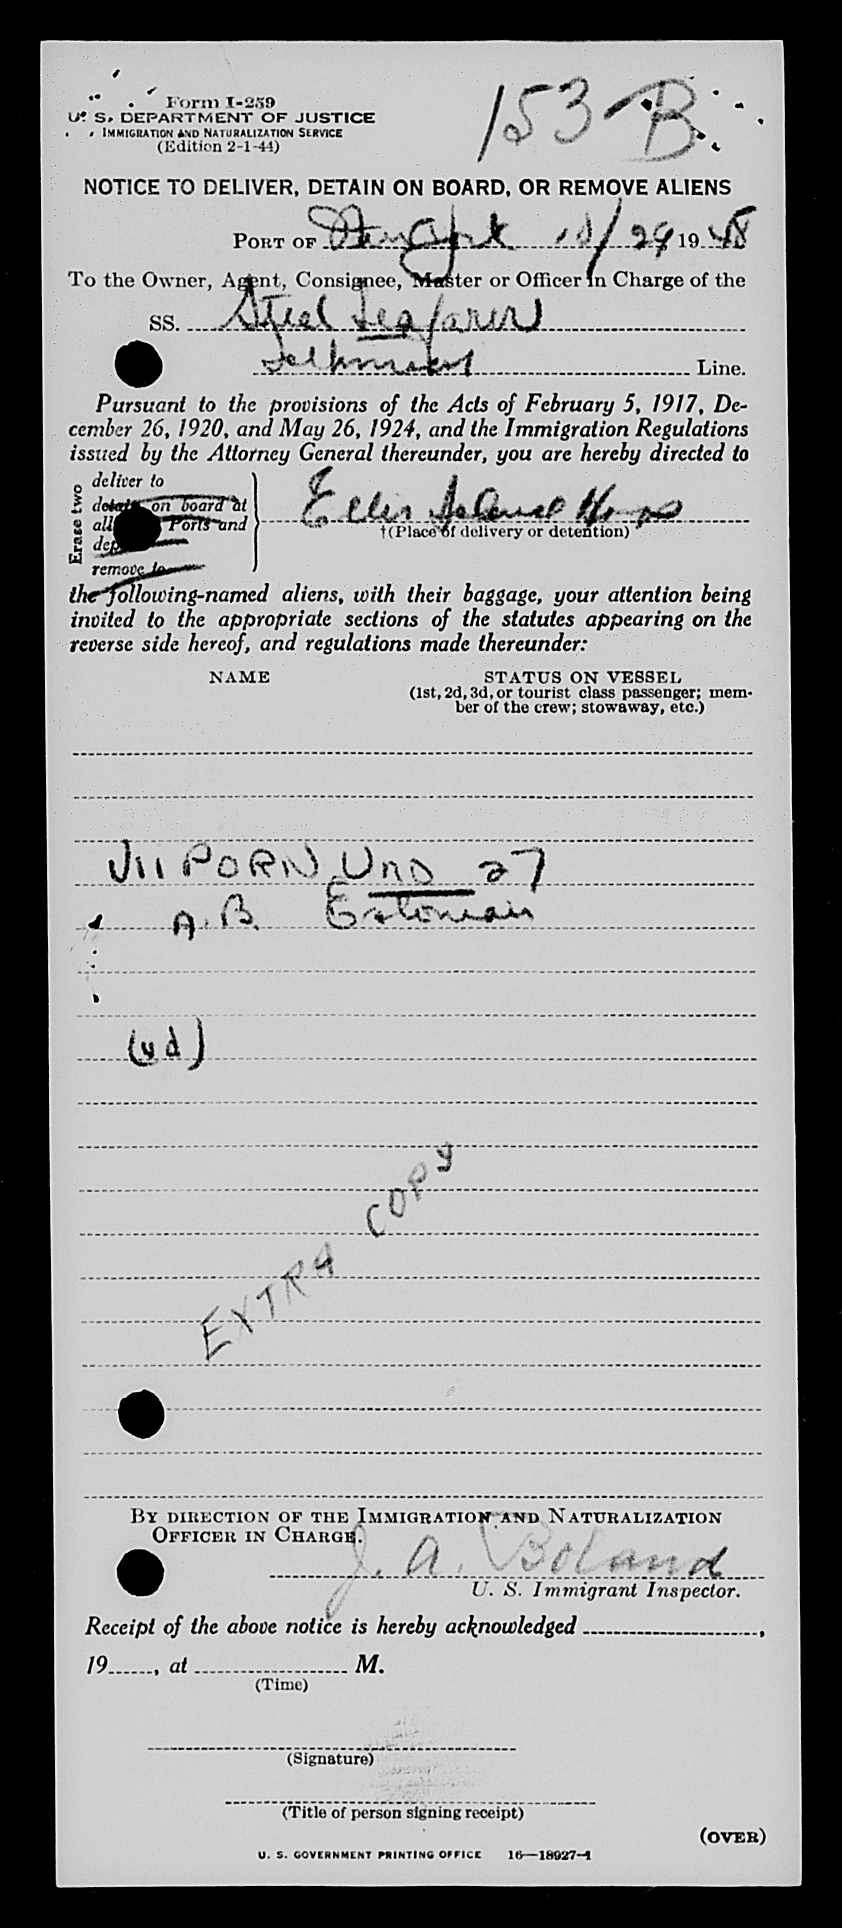 153-B
Form I-259
U. S. DEPARTMENT OF JUSTICE
IMMIGRATION AND NATURALIZATION SERVICE
(Edition 2-1-44)
NOTICE TO DELIVER, DETAIN ON BOARD, OR REMOVE ALIENS
PORT OF New York 10/29 1948
To the Owner, Agent, Consignee, Master or Officer in Charge of the
SS. Steel Seafarer
Line.
Pursuant to the provisions of the Acts of February 5, 1917, De-
cember 26, 1920, and May 26, 1924, and the Immigration Regulations
issued by the Attorney General thereunder, you are hereby directed to
Erase two
deliver to
detain on board at
all Ports and
remove to
Ellis Island Hosp
†(Place of delivery or detention)
the following-named aliens, with their baggage, your attention being
invited to the appropriate sections of the statutes appearing on the
reverse side hereof, and regulations made thereunder:
NAME
STATUS ON VESSEL
(1st, 2d, 3d, or tourist class passenger; mem-
ber of the crew; stowaway, etc.)
VIIPORN UNO 27
A.B. Estonian
(vd)
EXTRA COPY
BY DIRECTION OF THE IMMIGRATION AND NATURALIZATION
OFFICER IN CHARGE.
J. A. Boland
U. S. Immigrant Inspector.
Receipt of the above notice is hereby acknowledged ,
19 , at M.
(Time)
(Signature)
(Title of person signing receipt)
(OVER)
U. S. GOVERNMENT PRINTING OFFICE 16—18927-1